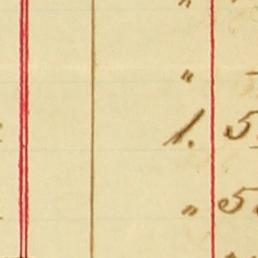 "
"
1. 5
" 5